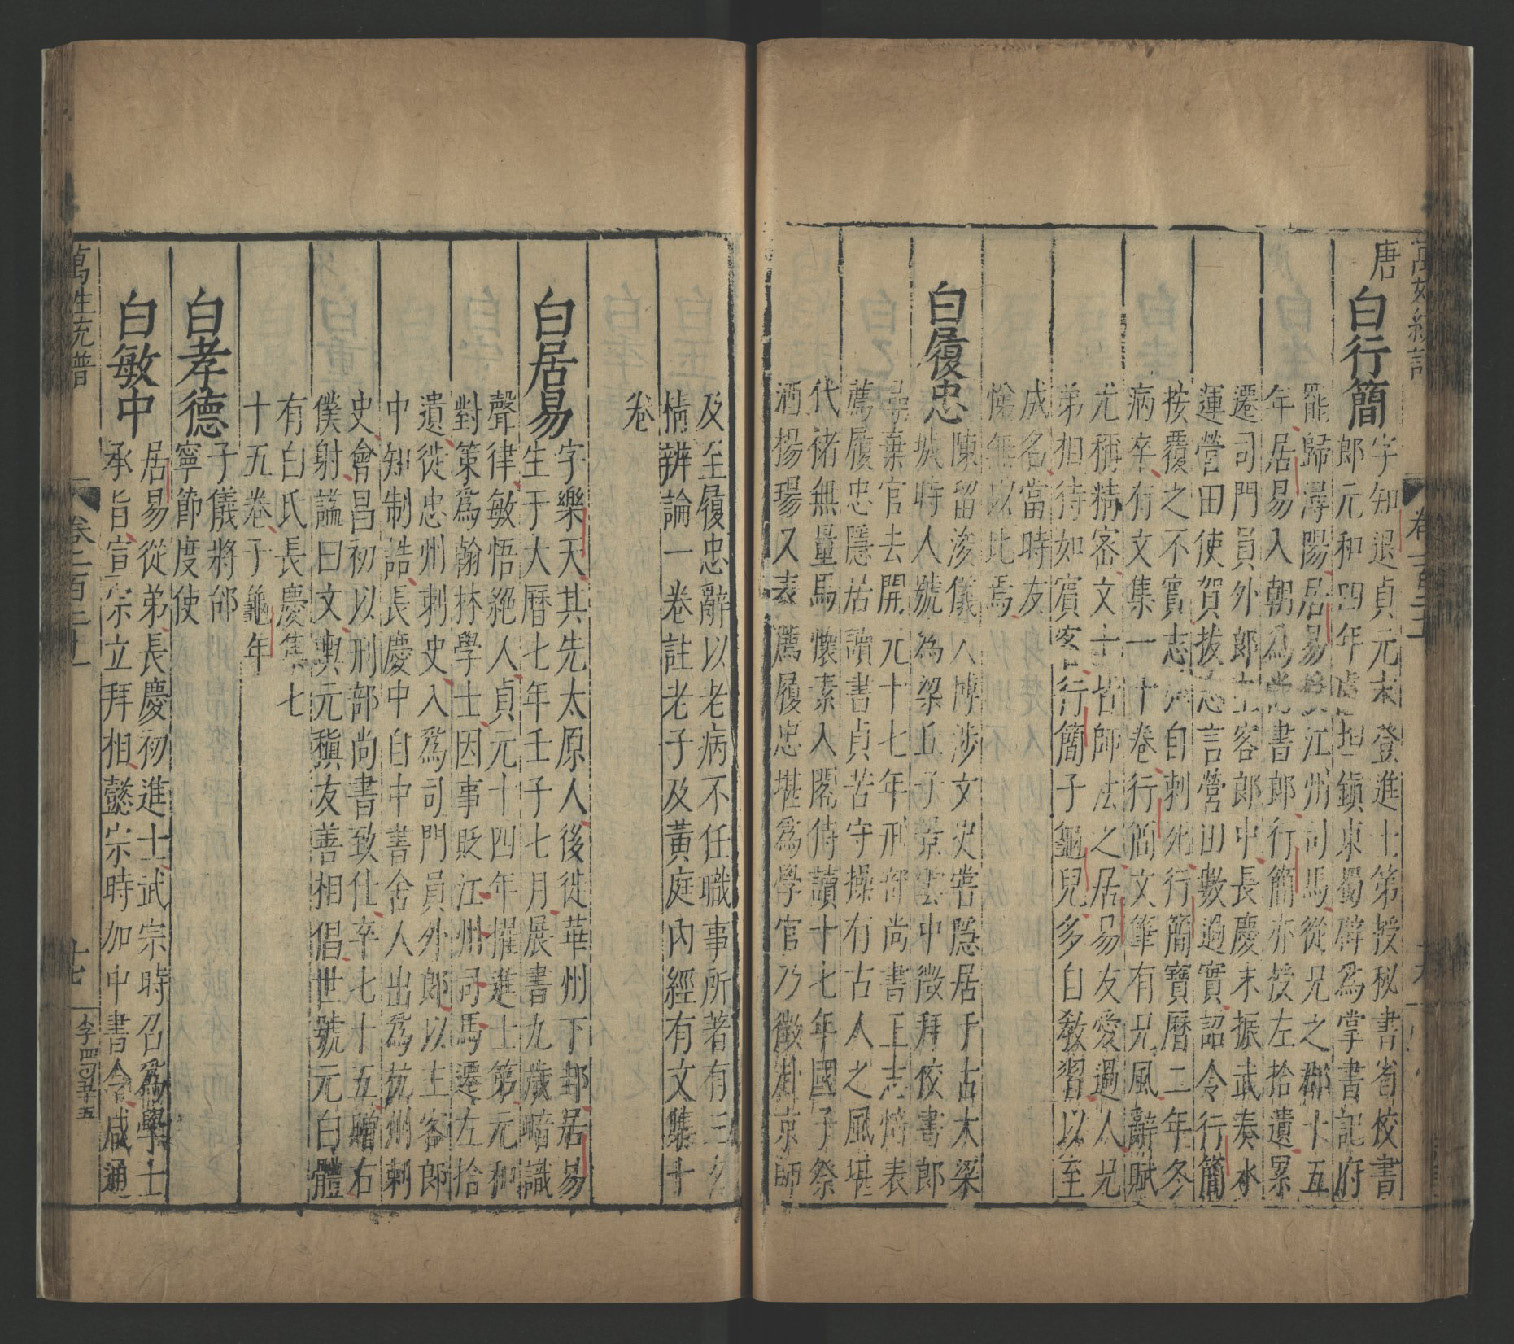 唐
白行簡
字知退貞元末登進士第授秘書省校書
郎元和四年盧坦鎮東蜀辟為掌書記府
罷歸潯陽居易授江州司馬從兄之郡十五
年居易入朝為尚書郎行簡亦授左拾遺累
遷司門員外郎主客郎中長慶末振武奏水
運營田使賀拔志言營田數過實詔令行簡
按覆之不實志自刺死行簡寶曆二年冬
病卒有文集一十卷行簡文筆有兄風辭賦
尤稱精密文士皆師法之居易友愛過人兄
弟相待如賓客行簡子龜兒多自教習以至
成名當時友
悌無以比焉
白履忠
陳留浚儀人博涉文史嘗隱居于古大梁
城時人號為梁丘子景雲中徵拜校書郎
尋棄官去開元十七年刑部尚書王志愔表
薦履忠隱居讀書貞苦守操有古人之風堪
代褚無量馬懷素入閣侍讀十七年國子祭
酒楊瑒又表薦履忠堪為學官乃徵赴京師
及至履忠辭以老病不任職事所著有三玄
精辨論一卷註老子及黃庭內經有文集十
卷
白居易
字樂天其先太原人後徙華州下邽居易
生于大曆七年壬子七月展書九歲暗識
聲律敏悟絕人貞元十四年擢進士第元和
對策為翰林學士因事貶江州司馬遷左拾
遺徙忠州刺史入為司門員外郎以主客郎
中知制誥長慶中自中書舍人出為杭州刺
史會昌初以刑部尚書致仕卒七十五贈右
僕射謚曰文與元稹友善相倡世號元白體
有白氏長慶集七
十五卷子龜年
白孝德
子儀將邠
寧節度使
白敏中
居易從弟長慶初進士武宗時召為學士
承旨宣宗立拜相懿宗時加中書令咸通
萬姓統譜
卷一百二十一
十七
李四 五十五